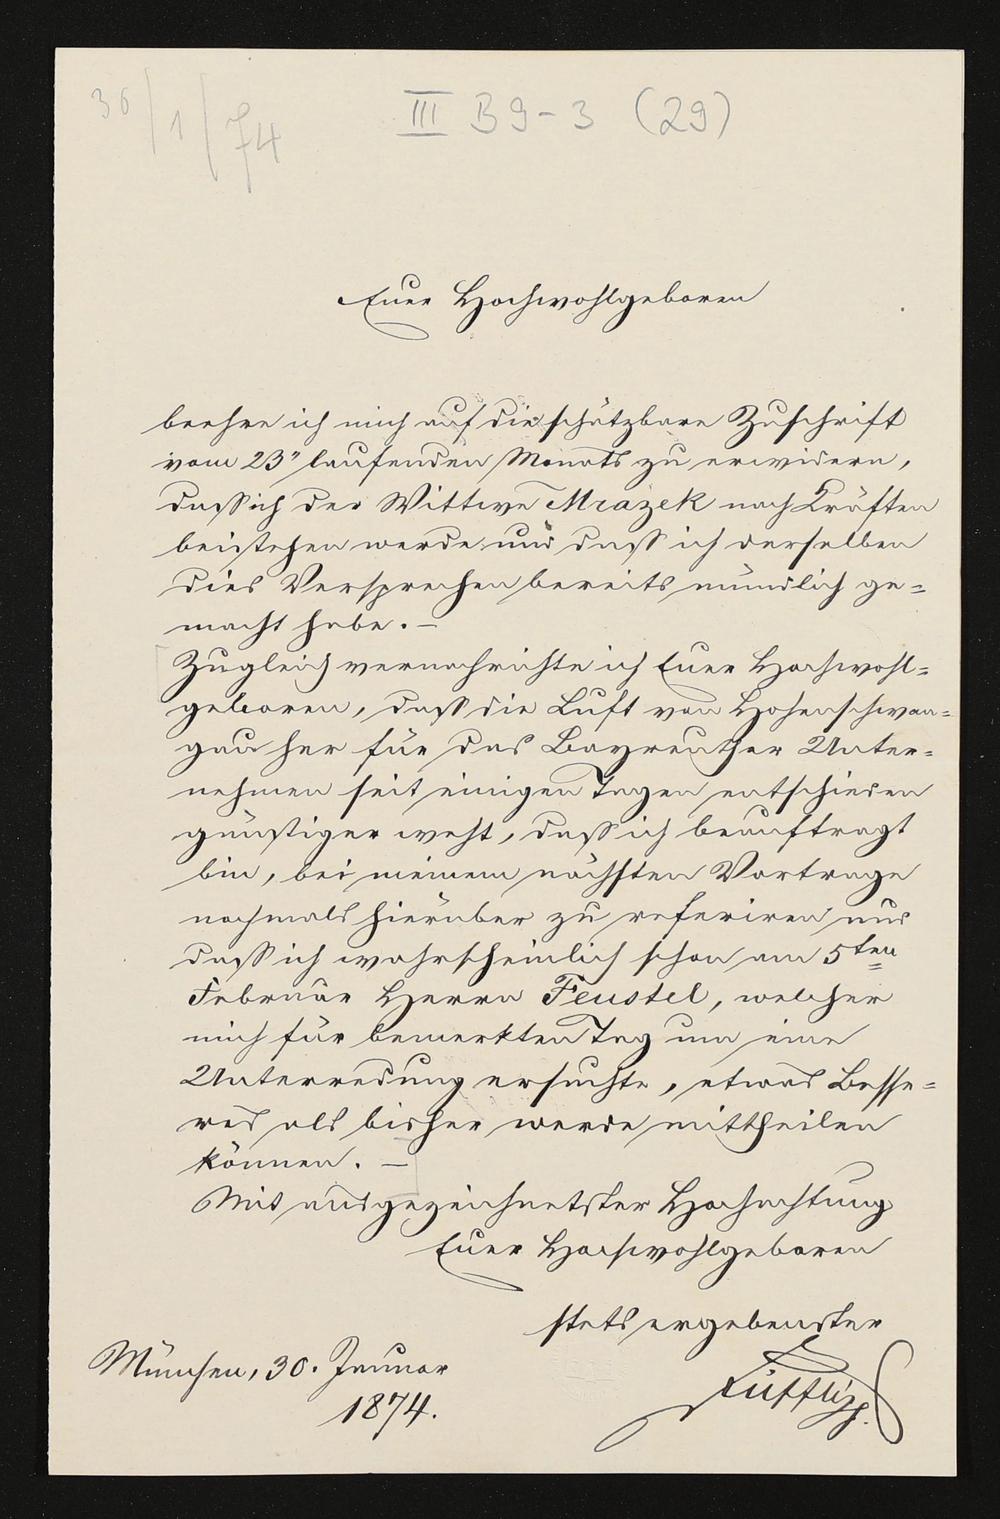 30/1/74
III B 9-3 (29)
Euer Hochwohlgeboren
beehre ich mich auf die schätzbare Zuschrift
vom 23" laufenden Monats zu erwidern,
daß ich der Wittwe Mrazek nach Kräften
beistehen werde und daß ich derselben
dies Versprechen bereits mündlich ge=
macht habe. —
Zugleich vernachrichte ich Euer Hochwohl=
geboren, daß die Luft von Hohenschwan=
gau her für das Bayreuther Unter=
nehmen seit einigen Tagen entschieden
günstiger weht, daß ich beauftragt
bin, bei meinem nächsten Vortrage
nochmals hierüber zu referiren und
daß ich wahrscheinlich schon am 5ten
Februar Herrn Feustel, welcher
mich für bemerkten Tag um eine
Unterredung ersuchte, etwas Besse=
res als bisher werde mittheilen
können. —
Mit ausgezeichnetster Hochachtung
Euer Hochwohlgeboren
stets ergebenster
Düfflipp.
München, 30. Januar
1874.